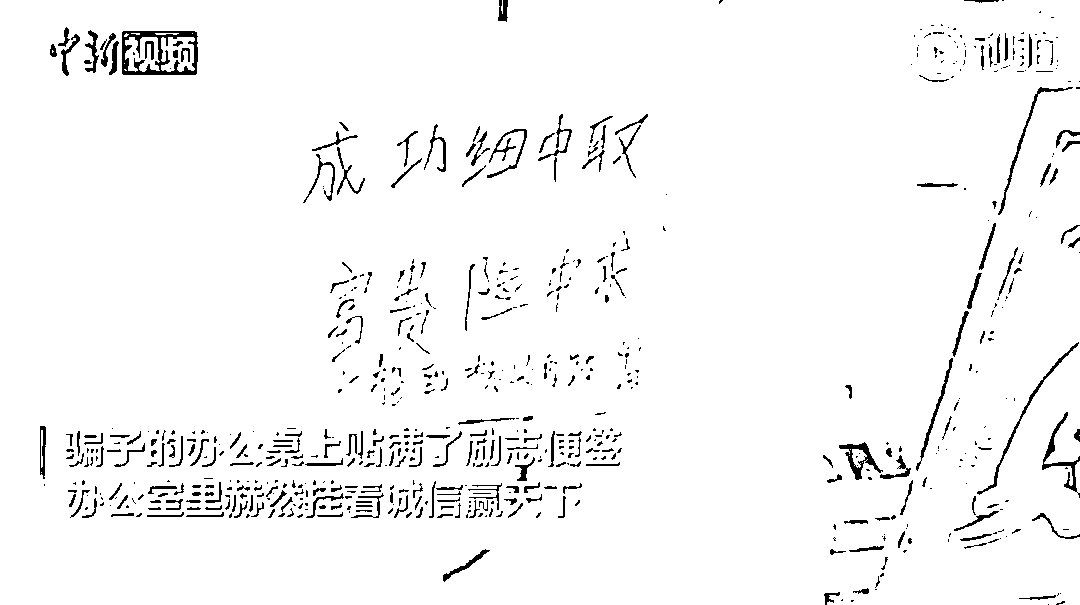 中新视频
成功细中取
富贵险中求
骗子的办公桌上贴满了励志便签
办公室里赫然挂着诚信赢天下